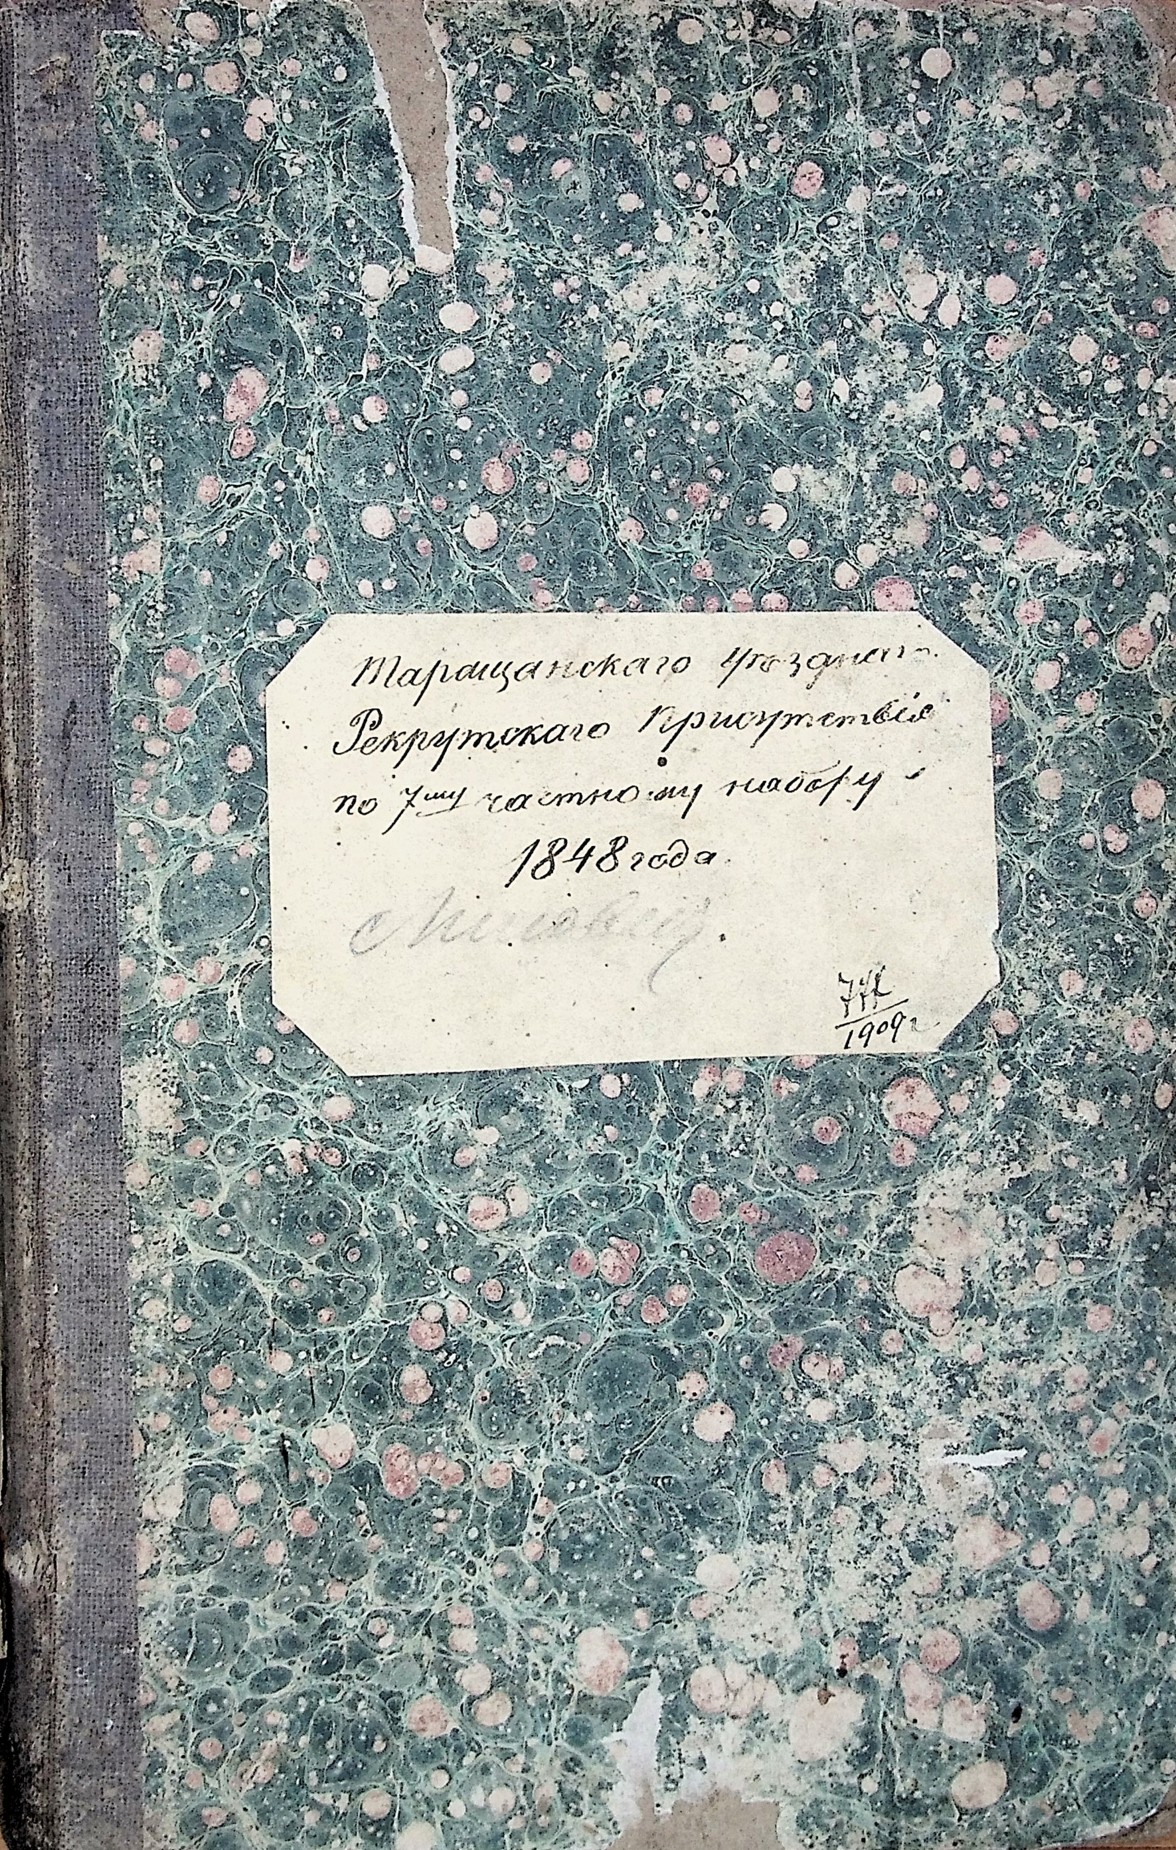 Таращанскаго уѣзднаго
Рекрутскаго Присутствія
по 7му частному набору
1848 года
1909 г.